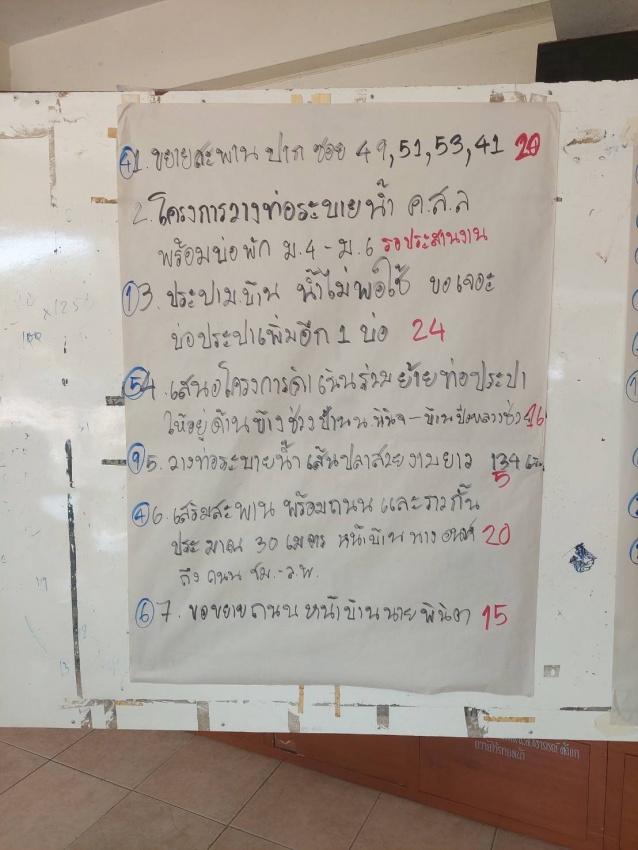 ④1. ขยายสะพาน ปาก ซอย 49,51,53,41 20
2. โครงการวางท่อระบายน้ำ ค.ส.ล
พร้อมบ่อพัก ม.4 - ม.6 รอประสานงาน
①3. ประปาม.บ้าน น้ำไม่พอใช้ ขอเจอะ
บ่อประปาเพิ่มอีก 1 บ่อ 24
⑤4. เสนอโครงการดำเนินร่วมย้ายท่อประปา
ให้อยู่ด้านข้าง ช่วงบ้านน.พินิจ - 16
⑨5. วางท่อระบายน้ำเส้นปลาสายงามยาว 134
5
④6. เสริมสะพาน พร้อมถนน และราวกั้น
ประมาณ 30 เมตร หน้าบ้าน นาง 20
ถึง ถนน ชม.-ล.พ.
⑥7. ขอขยายถนนหน้าบ้านนายพินิจา 15